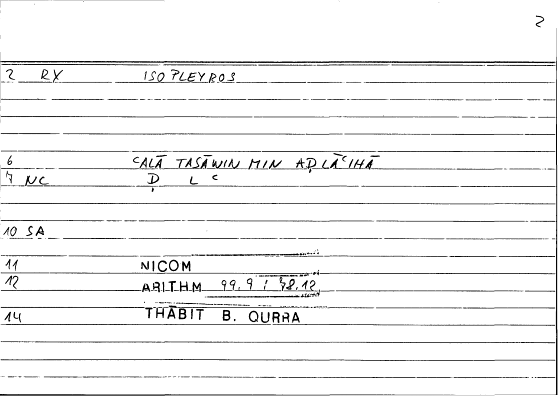 2
2 RX ISOPLEYROS
6 ʿALĀ TASĀWIN MIN AḌLĀʿIHĀ
7 NC Ḍ L ʿ
10 SA
11 NICOM
12 ARITHM 99,9 ; 78,12
14 THĀBIT B. QURRA